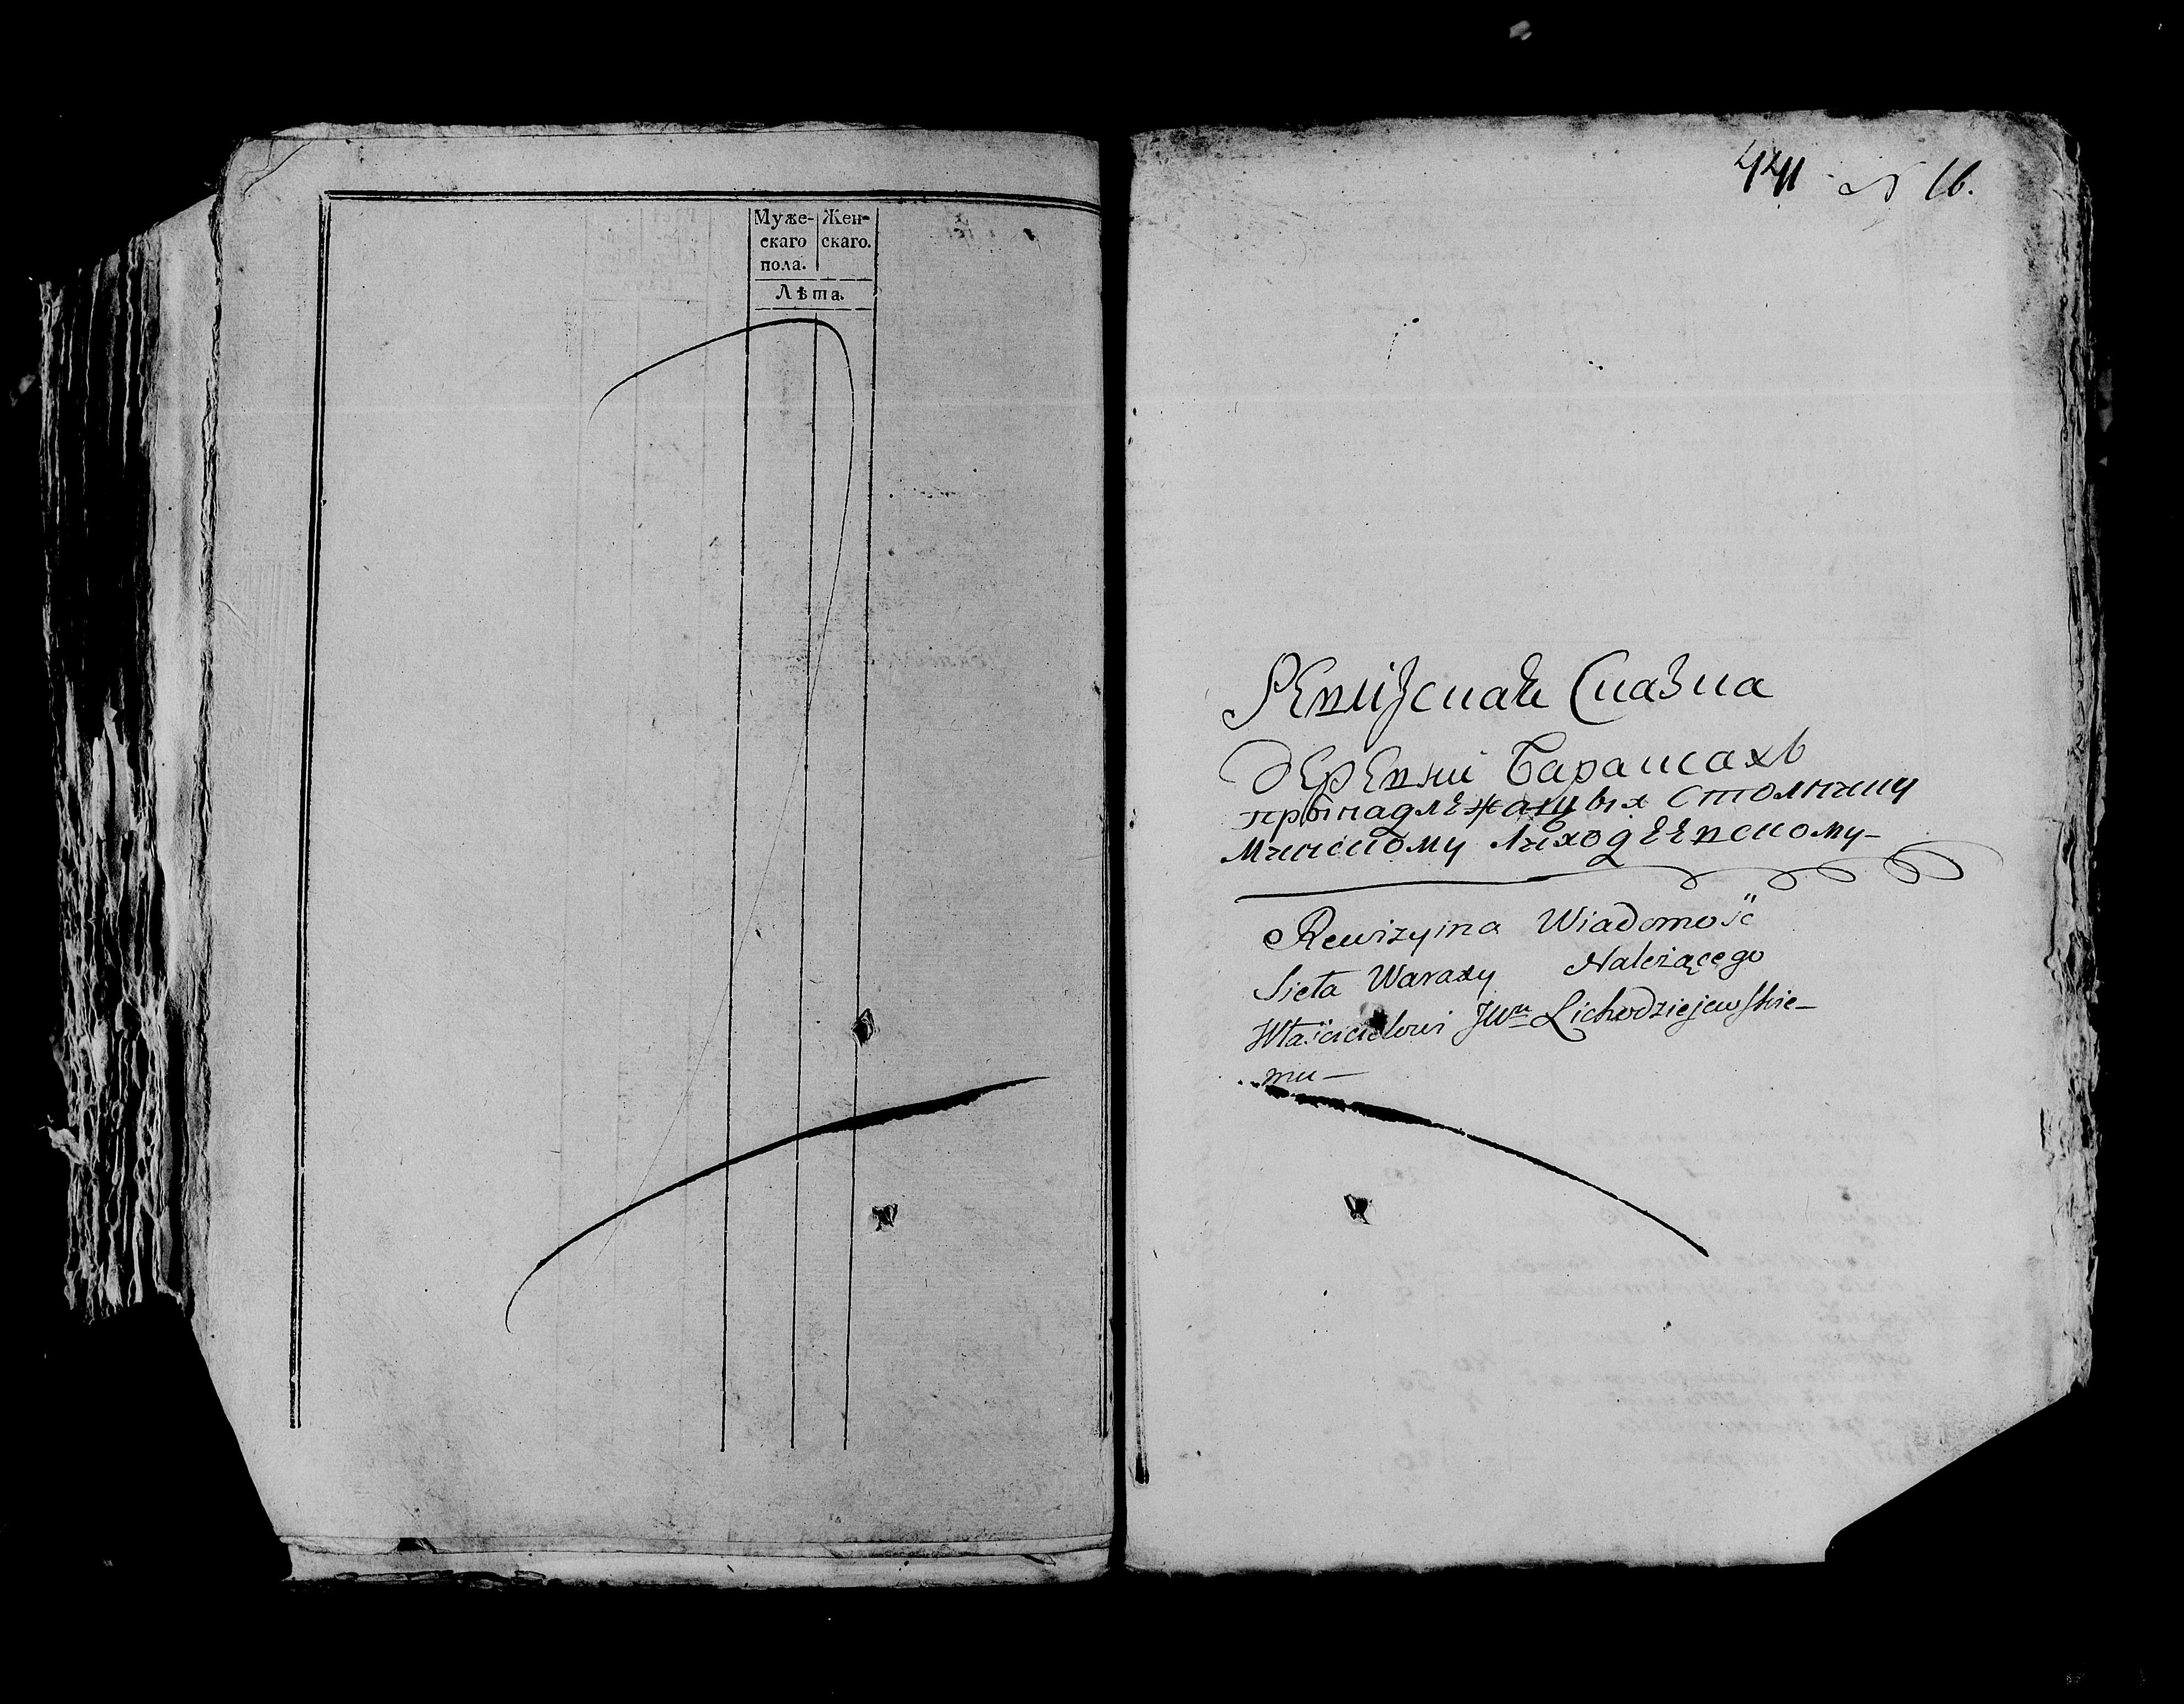 Муже- Жен-
скаго скаго.
пола.
Лѣта.
441 N 16.
Ревизская Сказка
деревни Барашахъ
принадлежащых Столнику
Минскому Лиходеевскому-
Rewizyina Wiadomość
Sieła Należącego
Właścicielowi JWu Lichodziejewskie-
mu-